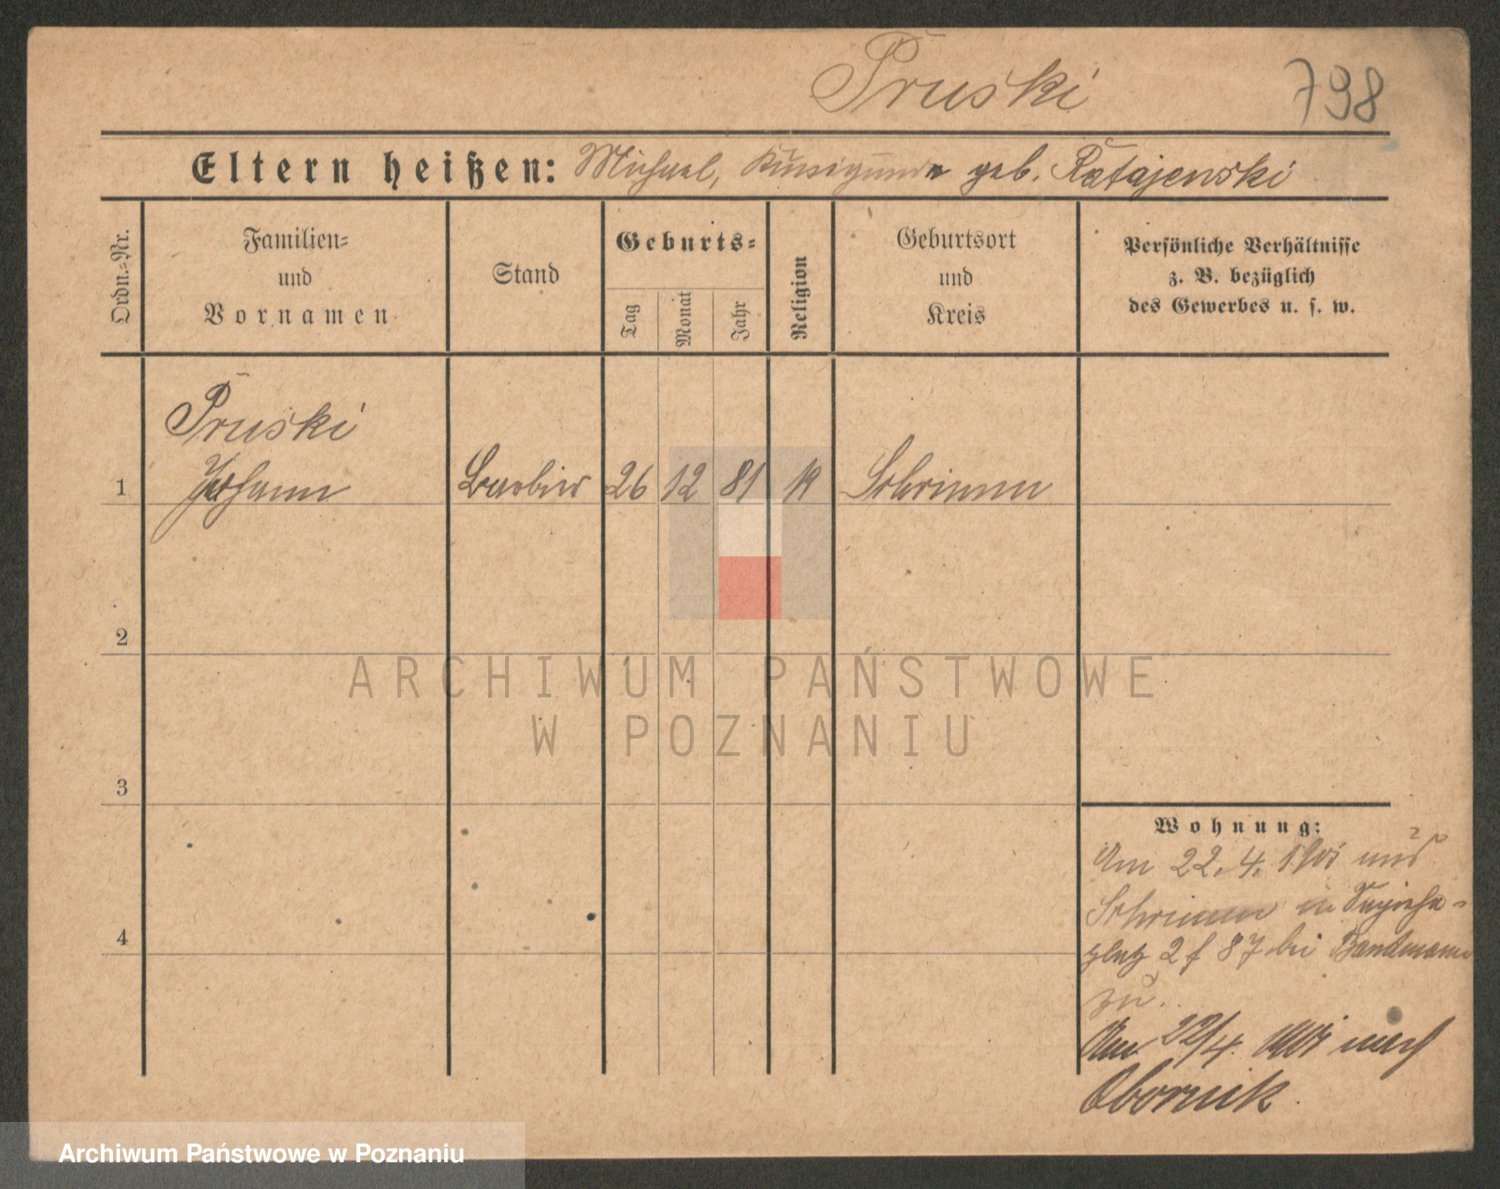 Pruski 798
Eltern heißen: Michael, Kunigunde geb. Ratajewski
Ordn.=Nr.
Familien=
und
Vornamen
Stand
Geburts=
Tag
Monat
Jahr
Religion
Geburtsort
und
Kreis
Persönliche Verhältnisse
z. B. bezüglich
des Gewerbes u. s. w.
Pruski
1 Johann Barbier 26 12 81 Schrimm
2
3
4
Wohnung:
Am 22. 4. aus
Schrimm in
platz 2 f 87 bei Bandmann
zu.
Am 22/4. nach
Obornik.
ARCHIWUM PAŃSTWOWE
W POZNANIU
Archiwum Państwowe w Poznaniu